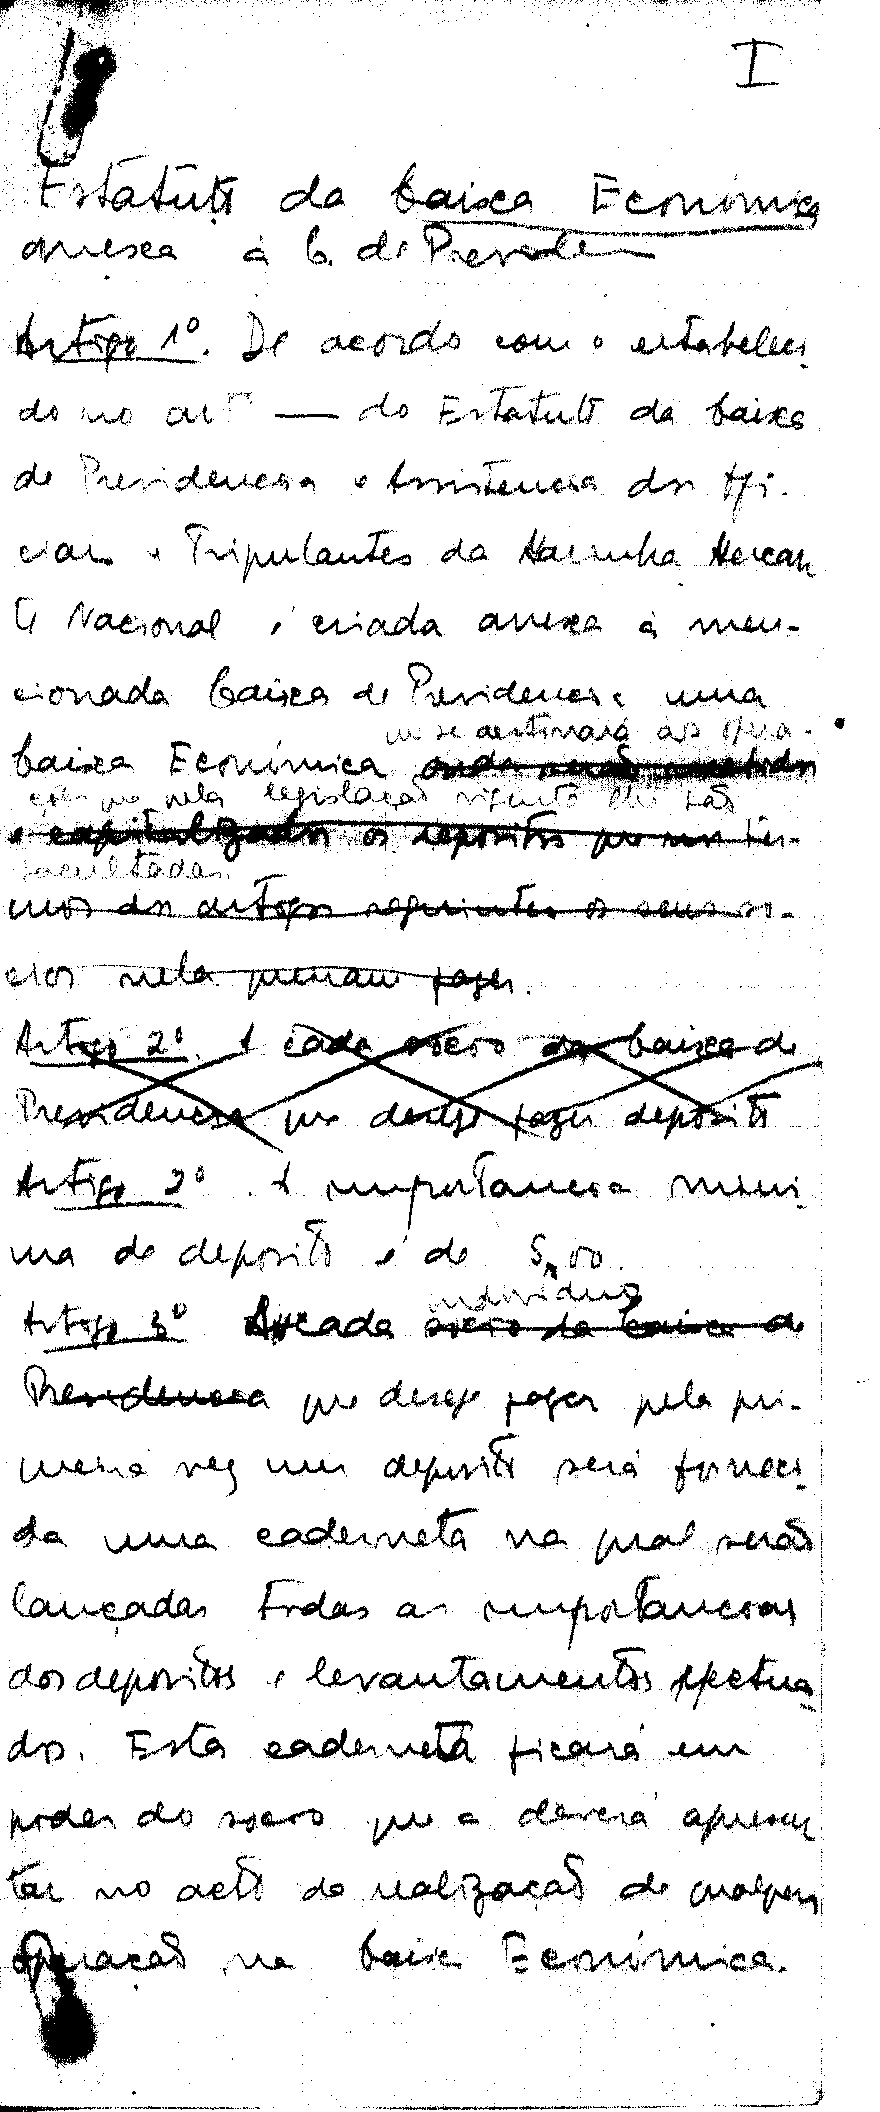 I
Estatuto da Caixa Económica
anexa à C. de Previdencia
Artigo 1º. De acordo com o estabeleci-
do no artº — do Estatuto da Caixa
de Previdencia e Assistencia dos Ofi-
ciais e Tripulantes da Marinha Mercan
te Nacional é criada anexa à men-
cionada Caixa de Previdencia uma
que se destinará às opera-
Caixa Económica onde serão recebidos
ções que pela legislação vigente lhe são
e capitalizados os depositos que nos ter-
facultadas.
mos dos artigos seguintes os seus so-
cios nela queiram fazer.
Artigo 2º. A cada socio da Caixa de
Previdencia que deseje fazer deposito
Artigo 2º. A importancia mini-
ma de deposito é de 5$00.
individuo
Artigo 3º A cada socio da Caixa de
Previdencia que deseje fazer pela pri-
meira vez um deposito será forneci-
da uma caderneta na qual serão
lançadas todas as importancias
dos depositos e levantamentos efectua-
dos. Esta caderneta ficará em
poder do socio que a deverá apresen
tar no acto da realização de qualquer
operação na Caixa Económica.